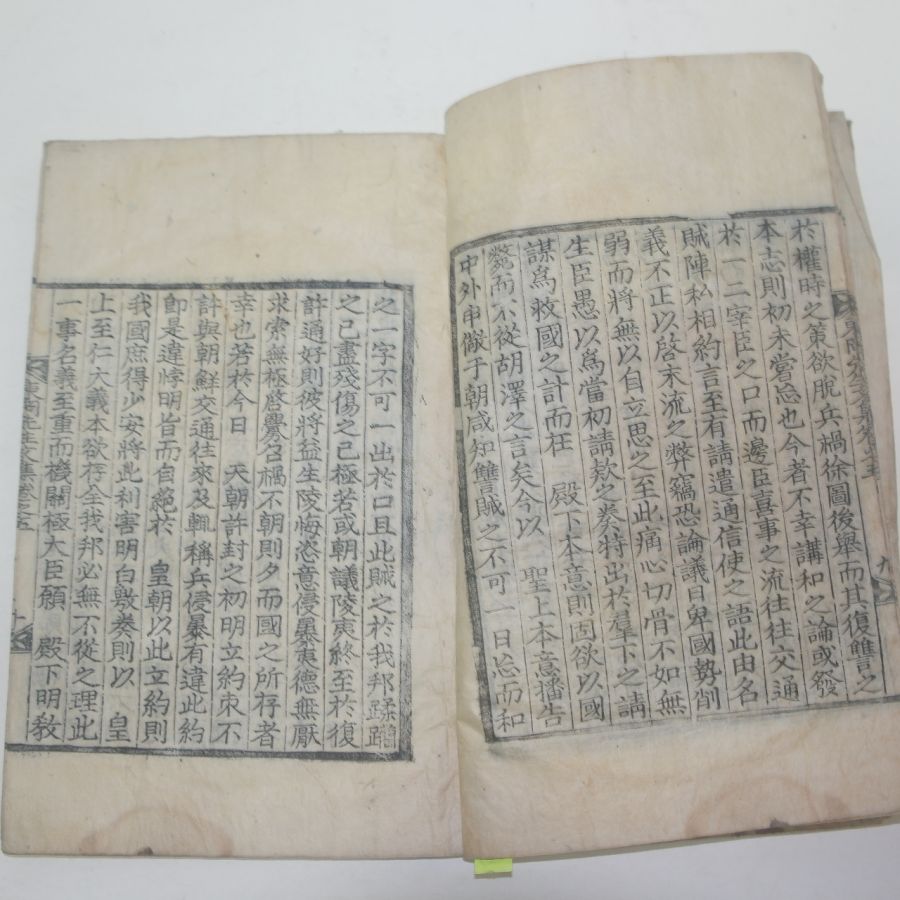 於權時之策欲脫兵禍徐圖後舉而其復讐之
本志則初未嘗忘也今者不幸講和之論或發
於一二宰臣之口而邊臣喜事之流往往交通
賊陣私相約言至有請遣通信使之語此由名
義不正以啓末流之弊竊恐論議日卑國勢削
弱而將無以自立思之至此痛心切骨不如無
生臣愚以爲當初請款之奏特出於羣下之請
謀爲救國之計而枉 殿下本意則固欲以國
斃而不從胡澤之言矣今以 聖上本意播告
中外申儆于朝咸知讐賊之不可一日忘而和
之一字不可一出於口且此賊之於我邦蹂躙
之已盡殘傷之已極若或朝議陵夷終至於復
許通好則彼將益生陵侮恣意侵暴夷德無厭
求索無極啓釁召禍不朝則夕而國之所存者
幸也若於今日 天朝許封之初明立約束不
許與朝鮮交通往來及輒稱兵侵暴有違此約
卽是違悖明旨而自絕於 皇朝以此立約則
我國庶得少安將此利害明白敷奏則以 皇
上至仁大義本欲存全我邦必無不從之理此
一事名義至重而機關極大臣願 殿下明敎
先生文集卷之五
十
九